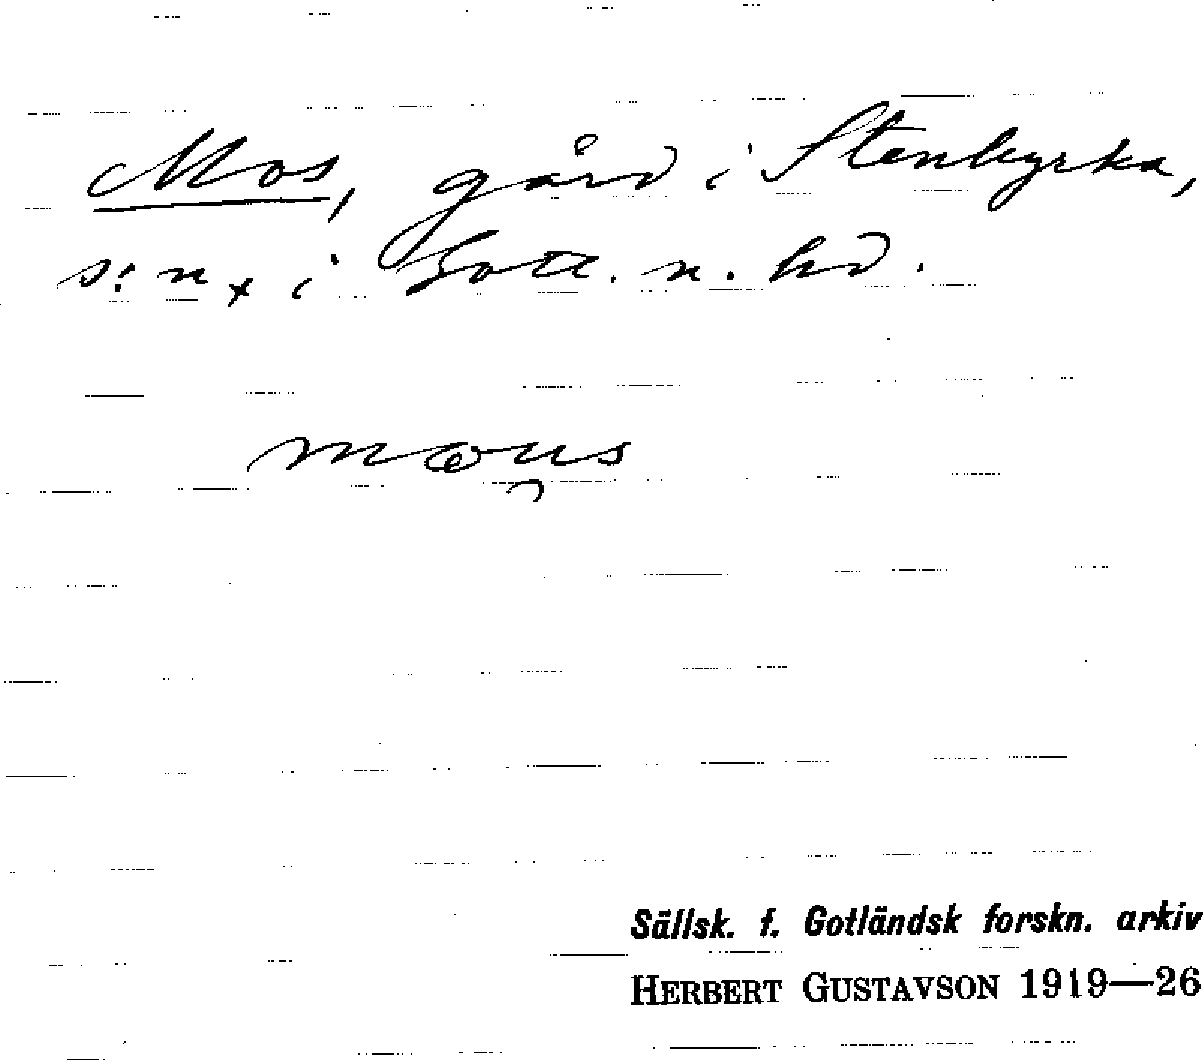 Mos, gård i Stenkyrka,
s:n, i Gotl. n. hd.
Sällsk. f. Gotländsk forskn. arkiv
HERBERT GUSTAVSON 1919—26